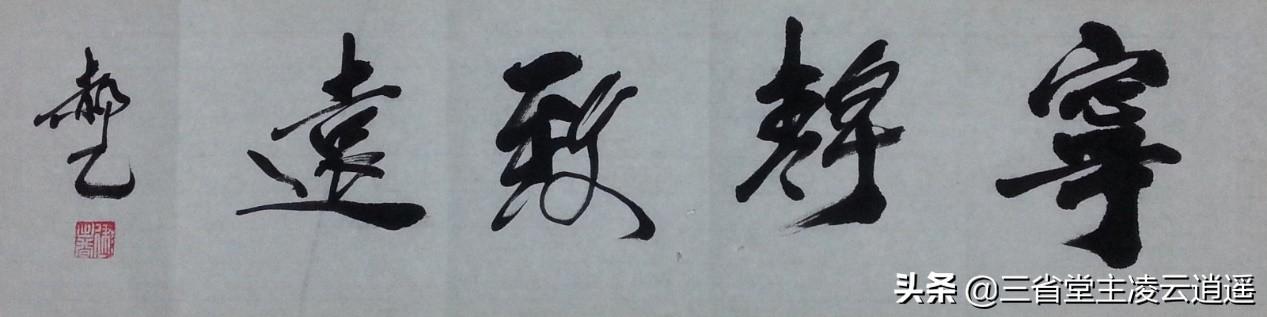 寧靜致遠
头条 @三省堂主凌云逍遥